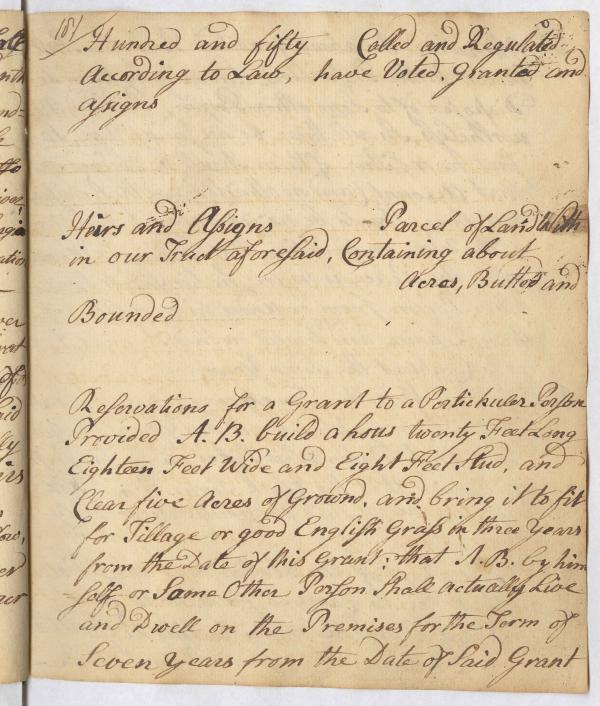 181
Hundred and fifty Called and Regulated
According to Law, have Voted, Granted and
Assigns
Heirs and Assigns - Parcel of Land With
in our Tract aforesaid, Containing about
Acres, Butted and
Bounded
Reservations for a Grant to a Pertickuler Person
Provided A. B. build a hous twenty Feet Long
Eighteen Feet Wide and Eight Feet Stud, and
Clear five Acres of Ground, and bring it to fit
for Tillage or good English Grass in three Years
from the Date of this Grant; that A. B. by him
=self or Some Other Person Shall actually Live
and Dwell on the Premises for the Term of
Seven Years from the Date of Said Grant